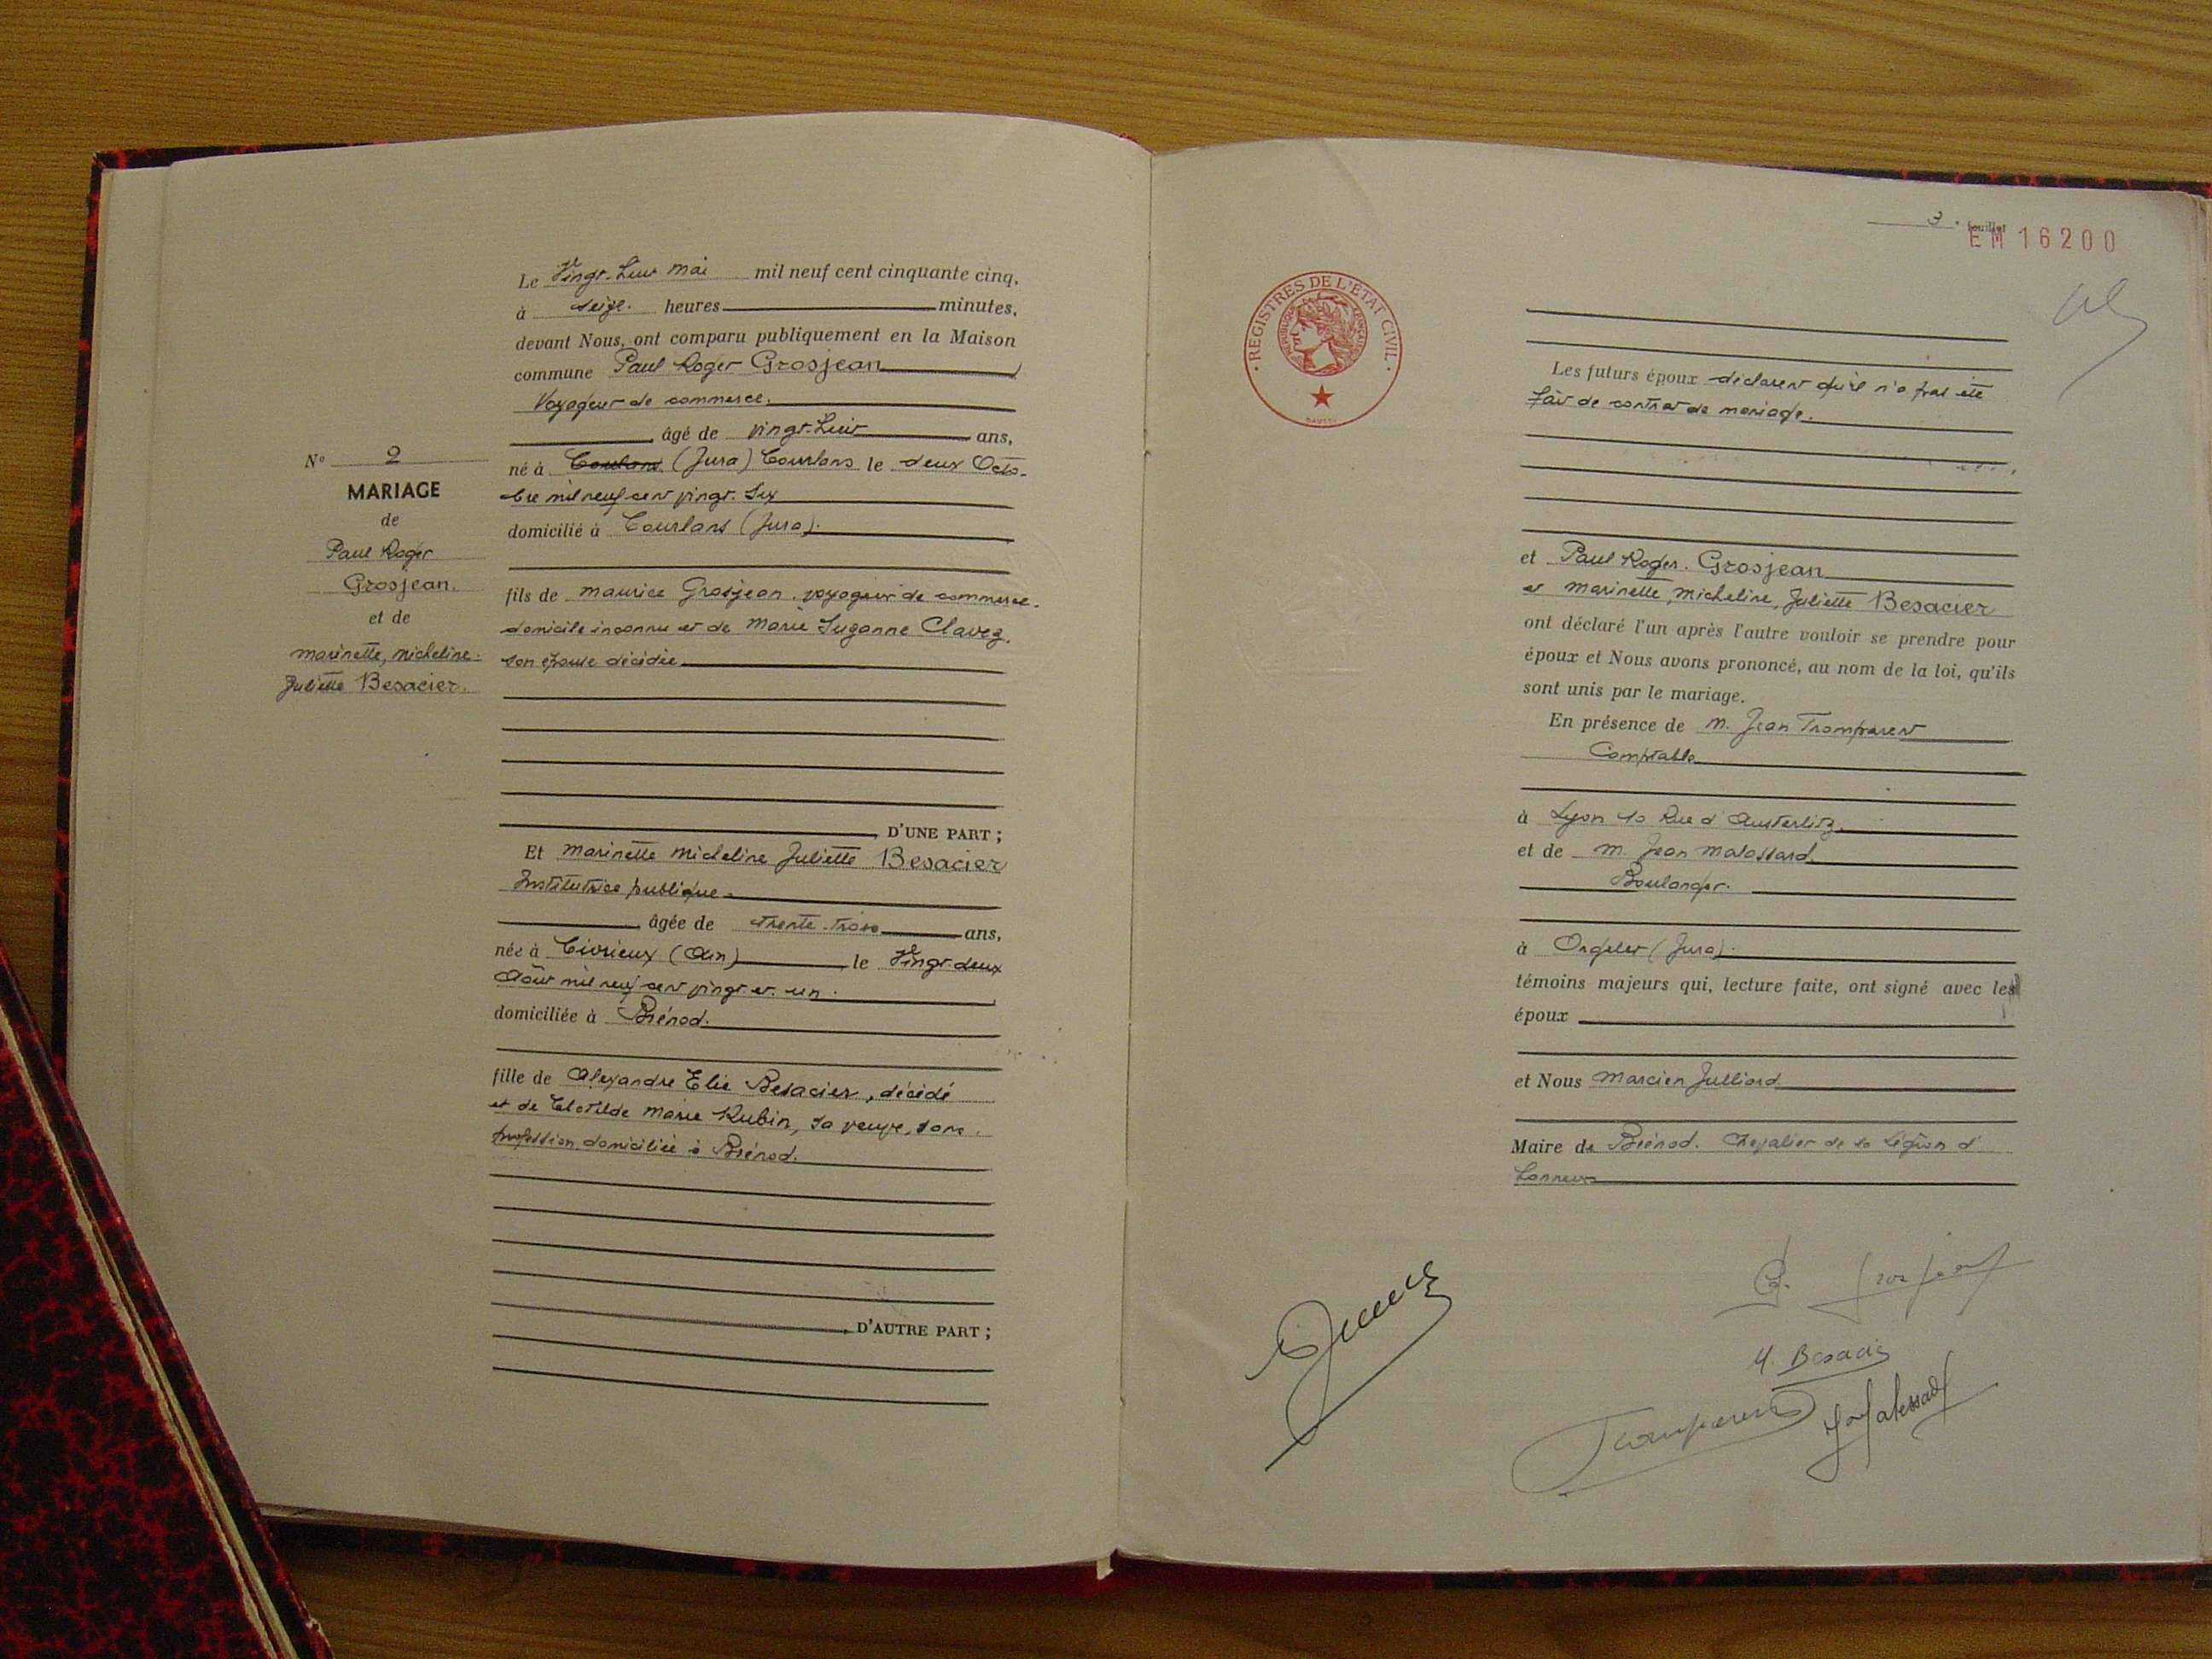 Le Vingt-huit mai mil neuf cent cinquante cinq,
à seize. heures minutes,
devant Nous, ont comparu publiquement en la Maison
commune Paul Roger Grosjean
Voyageur de commerce.
âgé de vingt-huit ans,
N° 2
né à Courlans (Jura) Courlans le deux Octo-
MARIAGE
bre mil neuf cent vingt-six
de
domicilié à Courlans (Jura).
Paul Roger
Grosjean.
fils de Maurice Grosjean, voyageur de commerce.
et de
domicile inconnu et de Marie Suzanne Clavez,
marinette, micheline.
son épouse décédée
Juliette Besacier.
D'UNE PART ;
Et Marinette Micheline Juliette Besacier
Institutrice publique
âgée de trente-trois ans,
née à Civrieux (Ain) le Vingt-deux
Août mil neuf cent vingt et un.
domiciliée à Brénod.
fille de Alexandre Elie Besacier, décédé
et de Clotilde Marie Rubin, sa veuve, sans
profession, domiciliée à Brénod.
D'AUTRE PART ;
3e feuillet
EM 16200
REGISTRES DE L'ÉTAT CIVIL
Les futurs époux déclarent qu'il n'a pas été
fait de contrat de mariage.
et Paul Roger. Grosjean
et Marinette, Micheline, Juliette Besacier
ont déclaré l'un après l'autre vouloir se prendre pour
époux et Nous avons prononcé, au nom de la loi, qu'ils
sont unis par le mariage.
En présence de M. Jean Tramparent
Comptable
à Lyon 10 Rue d'Austerlitz
et de M. Jean Malessard
Boulanger.
à Orgelet (Jura).
témoins majeurs qui, lecture faite, ont signé avec les
époux
et Nous Marcien Julliard
Maire de Brénod. Chevalier de la Légion d'
honneur
G. Grosjean
M. Besacier